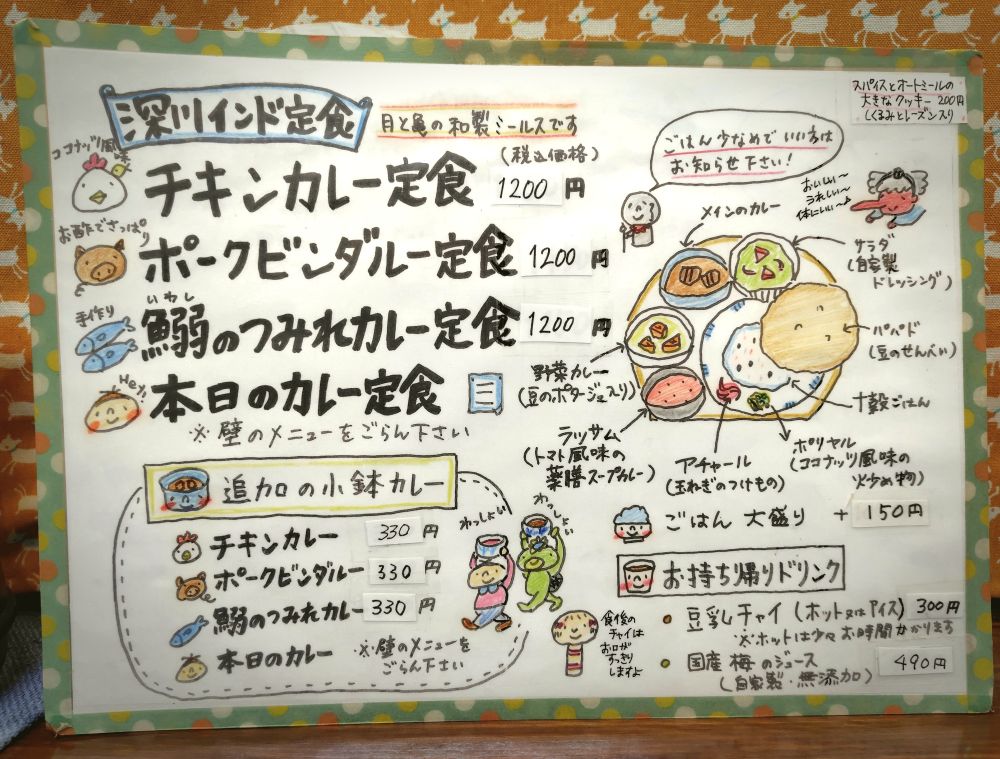 深川インド定食
月と亀の和製ミールスです
スパイスとオートミールの
大きなクッキー 200円
(くるみとレーズン入り)
(税込価格)
ココナッツ風味
チキンカレー定食 1200円
お酢でさっぱり
ポークビンダルー定食 1200円
手作り
いわし
鰯のつみれカレー定食 1200円
Hey!
本日のカレー定食
※壁のメニューをごらん下さい
ごはん少なめでいい方は
お知らせ下さい!
おいしい〜
うれしい〜
体にいい〜♪
メインのカレー
サラダ
(自家製
ドレッシング)
パパド
(豆のせんべい)
十穀ごはん
ポリヤル
(ココナッツ風味の
炒め物)
アチャール
(玉ねぎのつけもの)
ラッサム
(トマト風味の
薬膳スープカレー)
野菜カレー
(豆のポタージュ入り)
ごはん 大盛り +150円
追加の小鉢カレー
チキンカレー 330円
ポークビンダルー 330円
鰯のつみれカレー 330円
本日のカレー
※壁のメニューを
ごらん下さい
わっしょい
わっしょい
お持ち帰りドリンク
豆乳チャイ(ホット又はアイス) 300円
※ホットは少々お時間かかります
国産梅のジュース 490円
(自家製・無添加)
食後の
チャイは
お口が
すっきり
しますよ